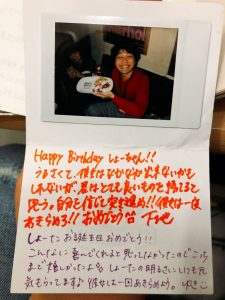 Happy Birthday しょーちゃん!!
うるさくて、彼女はなかなか出来ないかも
しれないが、君はとても良いものを持てると
思う。自分を信じて突き進め!!彼女は一度
あきらめろ!!おめでとう
しょーたお誕生日おめでとう!!
こんなに喜んでくれると思ってなかったのでこっち
まで嬉しかったよ しょーたの明るさにいつも元
気もらってます♪彼女は一回あきらめよう。ゆきこ